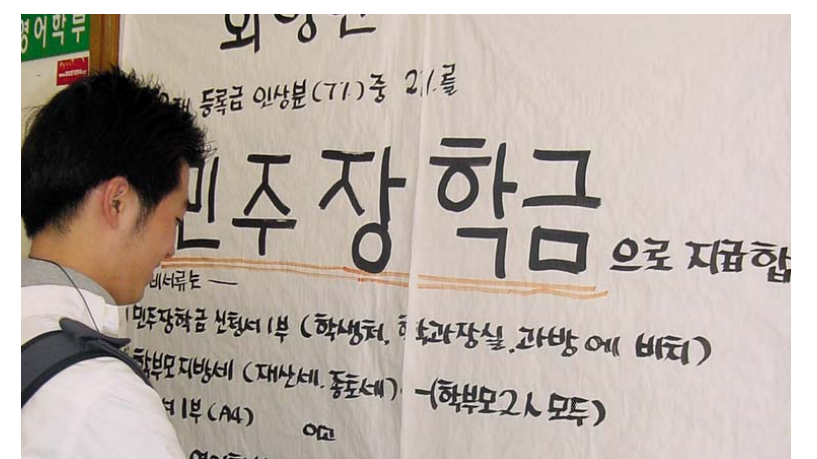 영어학부
등록금 인상분(7%)중 2%를
민주장학금으로 지급합
비서류는 —
민주장학금 신청서 1부 (학생처, 학과장실, 과방에 비치)
학부모지방세 (재산세, 종토세) -(학부모 2人 모두)
1부 (A4) 이고